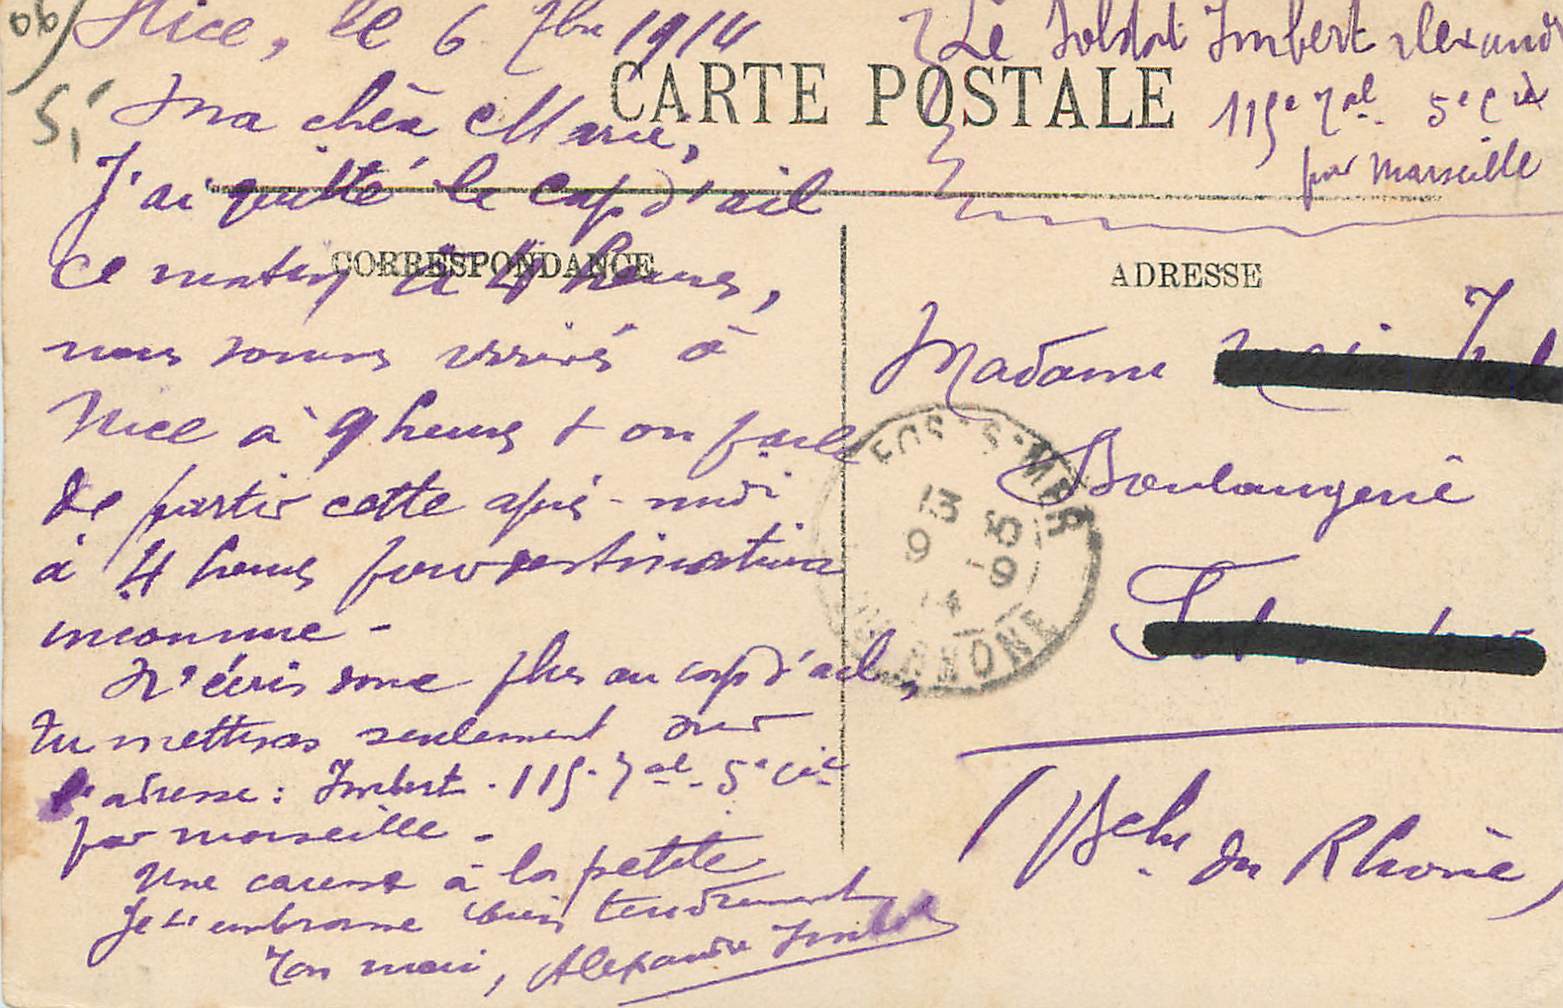 06)
Nice, le 6 7bre 1914
Le Soldat Imbert Alexandre
115e Tal 5e Cie
par Marseille
CARTE POSTALE
Ma chère Marie,
J'ai quitté le Cap d'ail
ce matin à 4 heures,
nous sommes arrivés à
Nice à 9 heures & on parle
de partir cette après-midi
à 4 heures pour destination
inconnue -
N'écris donc plus au cap d'ail,
tu mettras seulement sur
l'adresse : Imbert - 115e Tal - 5e Cie
par Marseille -
Une caresse à la petite
Je t'embrasse bien tendrement
Ton mari, Alexandre Imbert
CORRESPONDANCE
ADRESSE
Madame
Boulangerie
(Bches du Rhône)
FOS-S-MER
13 15
9 -9
14
RHÔNE